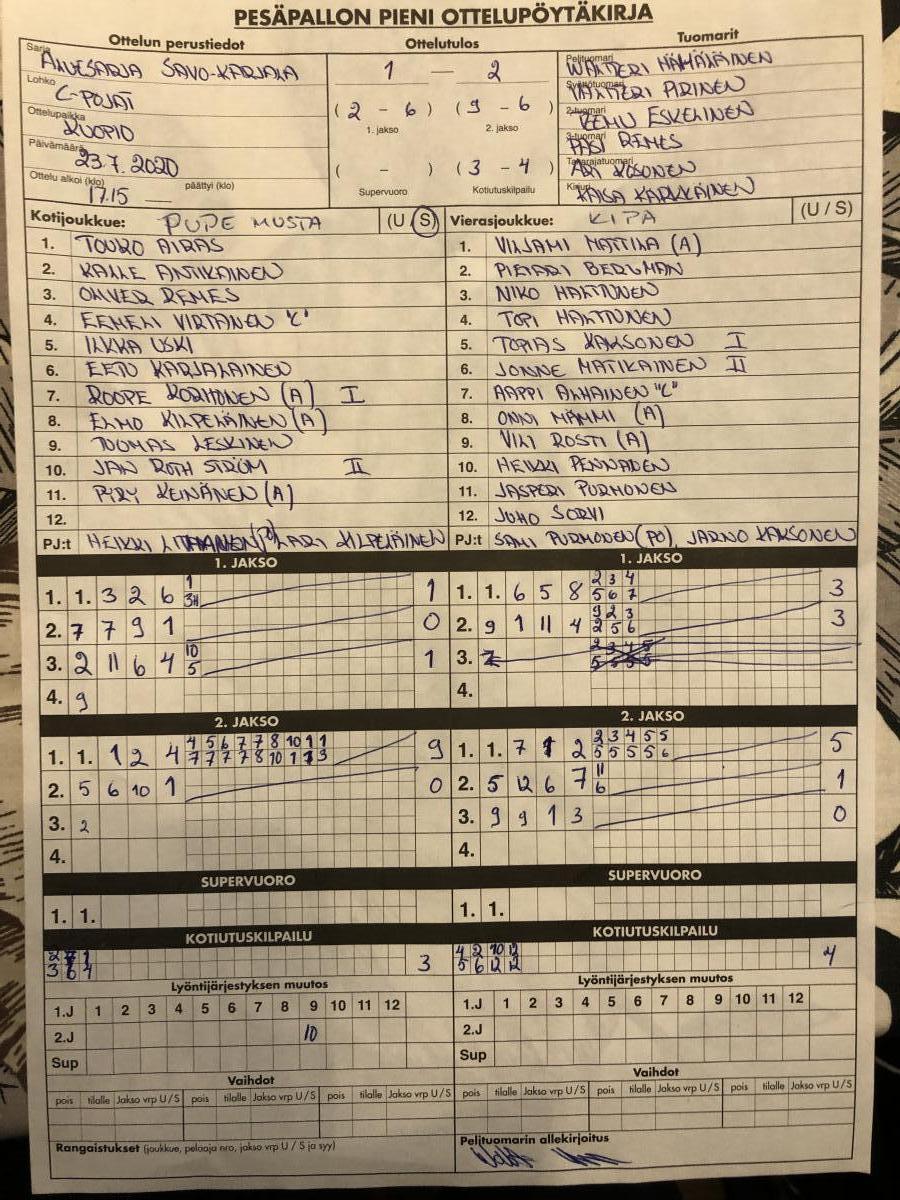 PESÄPALLON PIENI OTTELUPÖYTÄKIRJA
Ottelun perustiedot Ottelutulos Tuomarit
Sarja ALUESARJA SAVO-KARJALA 1 — 2 Pelituomari WALTTERI HÄMÄLÄINEN
Lohko C-POJAT ( 2 - 6 ) ( 9 - 6 ) Syöttötuomari VALTTERI PIRINEN
1. jakso 2. jakso
Ottelupaikka KUOPIO 2-tuomari REMU ESKELINEN
Päivämäärä 23.7.2020 ( - ) ( 3 - 4 ) 3-tuomari PASI REMES
Ottelu alkoi (klo) 17.15 päättyi (klo) — Supervuoro Kotiutuskilpailu Takarajatuomari ARI KOSONEN
Kirjuri KAISA KÄRKKÄINEN
Kotijoukkue: PUPE MUSTA (U / S) Vierasjoukkue: KIPA (U / S)
1. TOUKO AIRAS 1. VILJAMI MATTILA (A)
2. KALLE ANTIKAINEN 2. PIETARI BERGMAN
3. OLIVER REMES 3. NIKO HALTTUNEN
4. EEMELI VIRTANEN "C" 4. TOPI HALTTUNEN
5. ILKKA USKI 5. TOPIAS KAKSONEN I
6. EETU KARJALAINEN 6. JONNE MATIKAINEN II
7. ROOPE KORHONEN (A) I 7. AAPPI ALHAINEN "C"
8. ELMO KILPELÄINEN (A) 8. ONNI MÄMMI (A)
9. TUOMAS LESKINEN 9. VILI ROSTI (A)
10. JAN ROTHSTRÖM II 10. HEIKKI PENNANEN
11. PYRY KEINÄNEN (A) 11. JASPERI PURHONEN
12. 12. JUHO SORVI
PJ:t HEIKKI LARI KILPELÄINEN PJ:t SAMI PURHONEN (PO), JARNO KAKSONEN
1. JAKSO 1. JAKSO
1 2 3 4
1. 1. 3 2 6 3 1 1. 1. 6 5 8 5 6 7 3
9 2 3
2. 7 7 9 1 0 2. 9 1 11 4 2 5 6 3
10
3. 2 11 6 4 5 1 3.
4. 9 4.
2. JAKSO 2. JAKSO
4 5 6 7 7 8 10 1 1 2 3 4 5 5
1. 1. 1 2 4 7 7 7 7 8 10 1 1 3 9 1. 1. 7 1 2 5 5 5 5 6 5
11
2. 5 6 10 1 0 2. 5 12 6 7 6 1
3. 2 3. 9 9 1 3 0
4. 4.
SUPERVUORO SUPERVUORO
1. 1. 1. 1.
KOTIUTUSKILPAILU KOTIUTUSKILPAILU
4 2 10 12
3 6 4 3 5 6 12 12 4
Lyöntijärjestyksen muutos Lyöntijärjestyksen muutos
1.J 1 2 3 4 5 6 7 8 9 10 11 12 1.J 1 2 3 4 5 6 7 8 9 10 11 12
2.J 10 2.J
Sup Sup
Vaihdot Vaihdot
pois tilalle Jakso vrp U / S pois tilalle Jakso vrp U / S pois tilalle Jakso vrp U / S pois tilalle Jakso vrp U / S pois tilalle Jakso vrp U / S pois tilalle Jakso vrp U / S
Rangaistukset (joukkue, pelaaja nro, jakso vrp U / S ja syy) Pelituomarin allekirjoitus